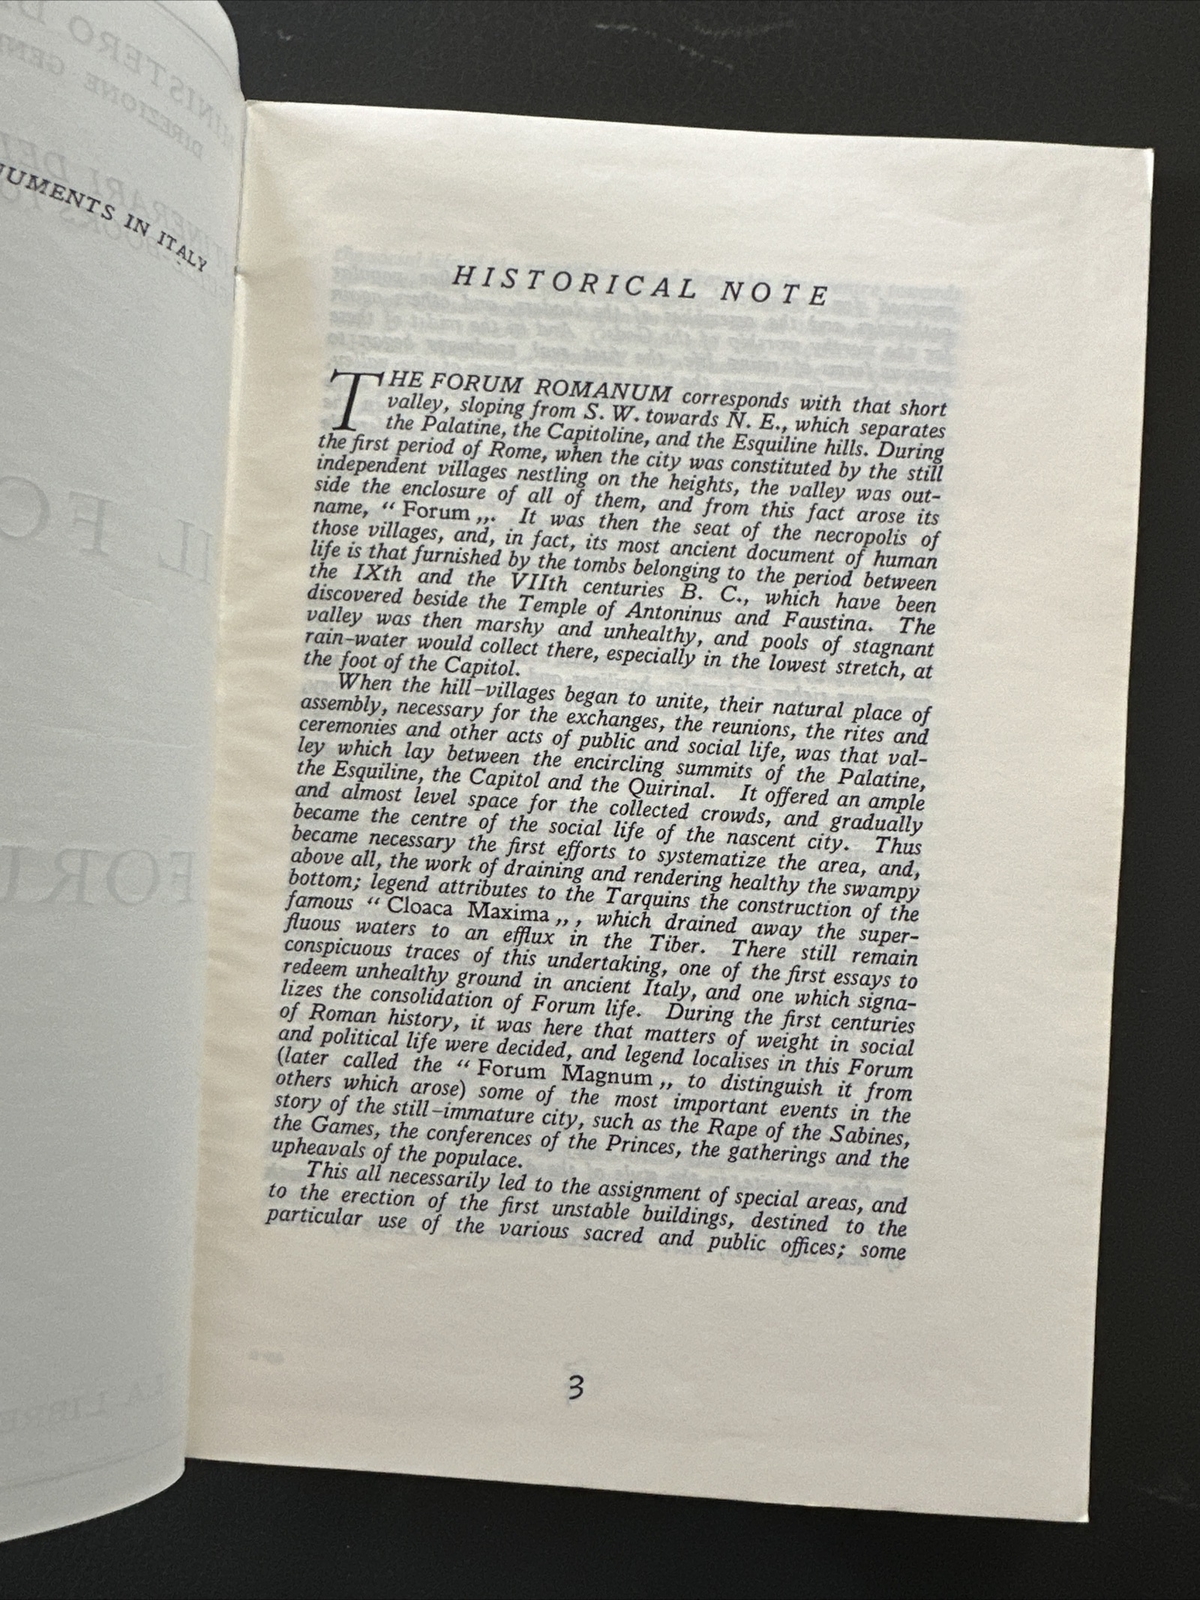 NUMENTS IN ITALY
HISTORICAL NOTE
THE FORUM ROMANUM corresponds with that short
valley, sloping from S. W. towards N. E., which separates
the Palatine, the Capitoline, and the Esquiline hills. During
the first period of Rome, when the city was constituted by the still
independent villages nestling on the heights, the valley was out-
side the enclosure of all of them, and from this fact arose its
name, “ Forum „. It was then the seat of the necropolis of
those villages, and, in fact, its most ancient document of human
life is that furnished by the tombs belonging to the period between
the IXth and the VIIth centuries B. C., which have been
discovered beside the Temple of Antoninus and Faustina. The
valley was then marshy and unhealthy, and pools of stagnant
rain-water would collect there, especially in the lowest stretch, at
the foot of the Capitol.
When the hill-villages began to unite, their natural place of
assembly, necessary for the exchanges, the reunions, the rites and
ceremonies and other acts of public and social life, was that val-
ley which lay between the encircling summits of the Palatine,
the Esquiline, the Capitol and the Quirinal. It offered an ample
and almost level space for the collected crowds, and gradually
became the centre of the social life of the nascent city. Thus
became necessary the first efforts to systematize the area, and,
above all, the work of draining and rendering healthy the swampy
bottom; legend attributes to the Tarquins the construction of the
famous “ Cloaca Maxima „ , which drained away the super-
fluous waters to an efflux in the Tiber. There still remain
conspicuous traces of this undertaking, one of the first essays to
redeem unhealthy ground in ancient Italy, and one which signa-
lizes the consolidation of Forum life. During the first centuries
of Roman history, it was here that matters of weight in social
and political life were decided, and legend localises in this Forum
(later called the “ Forum Magnum „ to distinguish it from
others which arose) some of the most important events in the
story of the still-immature city, such as the Rape of the Sabines,
the Games, the conferences of the Princes, the gatherings and the
upheavals of the populace.
This all necessarily led to the assignment of special areas, and
to the erection of the first unstable buildings, destined to the
particular use of the various sacred and public offices; some
3